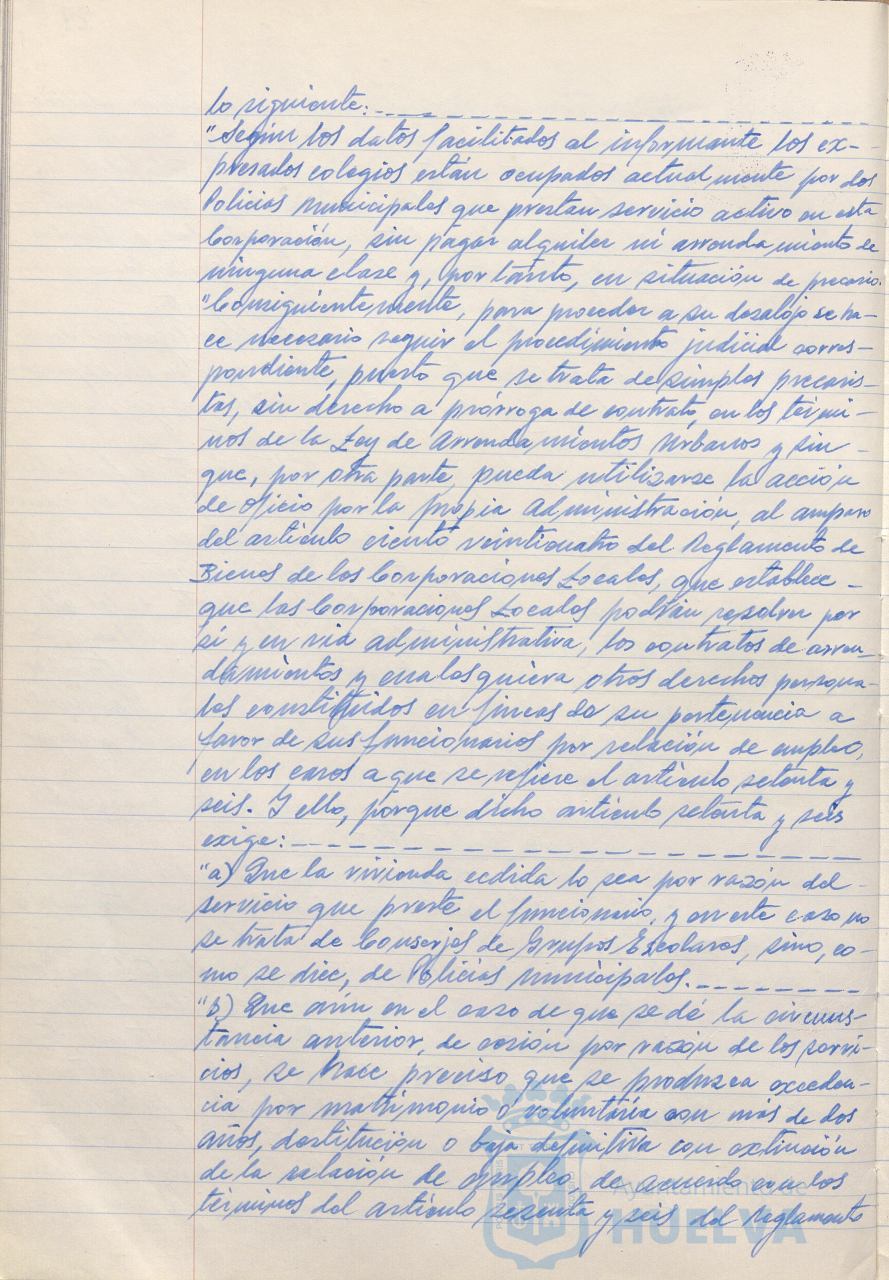 lo siguiente:
"Según los datos facilitados al informante los ex-
presados colegios están ocupados actualmente por dos
Policías Municipales que prestan servicio activo en esta
Corporación, sin pagar alquiler ni arrendamiento de
ninguna clase y, por tanto, en situación de precario.
"Consiguientemente, para proceder a su desalojo se ha-
ce necesario seguir el procedimiento judicial corres-
pondiente, puesto que se trata de simples precaris-
tas, sin derecho a prórroga de contrato, en los térmi-
nos de la Ley de Arrendamientos Urbanos y sin
que, por otra parte, pueda utilizarse la acción
de oficio por la propia Administración, al amparo
del artículo ciento veinticuatro del Reglamento de
Bienes de las Corporaciones Locales, que establece
que las Corporaciones Locales podrán resolver por
sí y en vía administrativa, los contratos de arren-
damientos y cualesquiera otros derechos persona-
les constituidos en fincas de su pertenencia a
favor de sus funcionarios por relación de empleo,
en los casos a que se refiere el artículo setenta y
seis. Y ello, porque dicho artículo setenta y seis
exige:
"a) Que la vivienda cedida lo sea por razón del
servicio que preste el funcionario, y en este caso no
se trata de Conserjes de Grupos Escolares, sino, co-
mo se dice, de Policías Municipales.
"b) Que aún en el caso de que se dé la circuns-
tancia anterior, de cesión por razón de los servi-
cios, se hace preciso que se produzca exceden-
cia por matrimonio o voluntaria con más de dos
años, destitución o baja definitiva con extinción
de la relación de empleo, de acuerdo con los
términos del artículo sesenta y seis del Reglamento
Ayuntamiento de
HUELVA